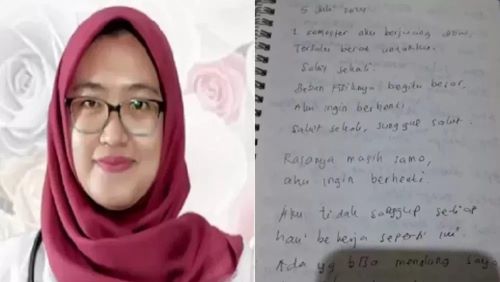 5 Juli
1 semester aku berjuang
Terlalu berat untukku.
Sakit sekali.
Beban fisiknya begitu besar,
Aku ingin berhenti.
Sakit sekali, sungguh sakit.
Rasanya masih sama,
aku ingin berhenti.
Aku tidak sanggup setiap
hari bekerja seperti ini.
Ada yg bisa menolong saya